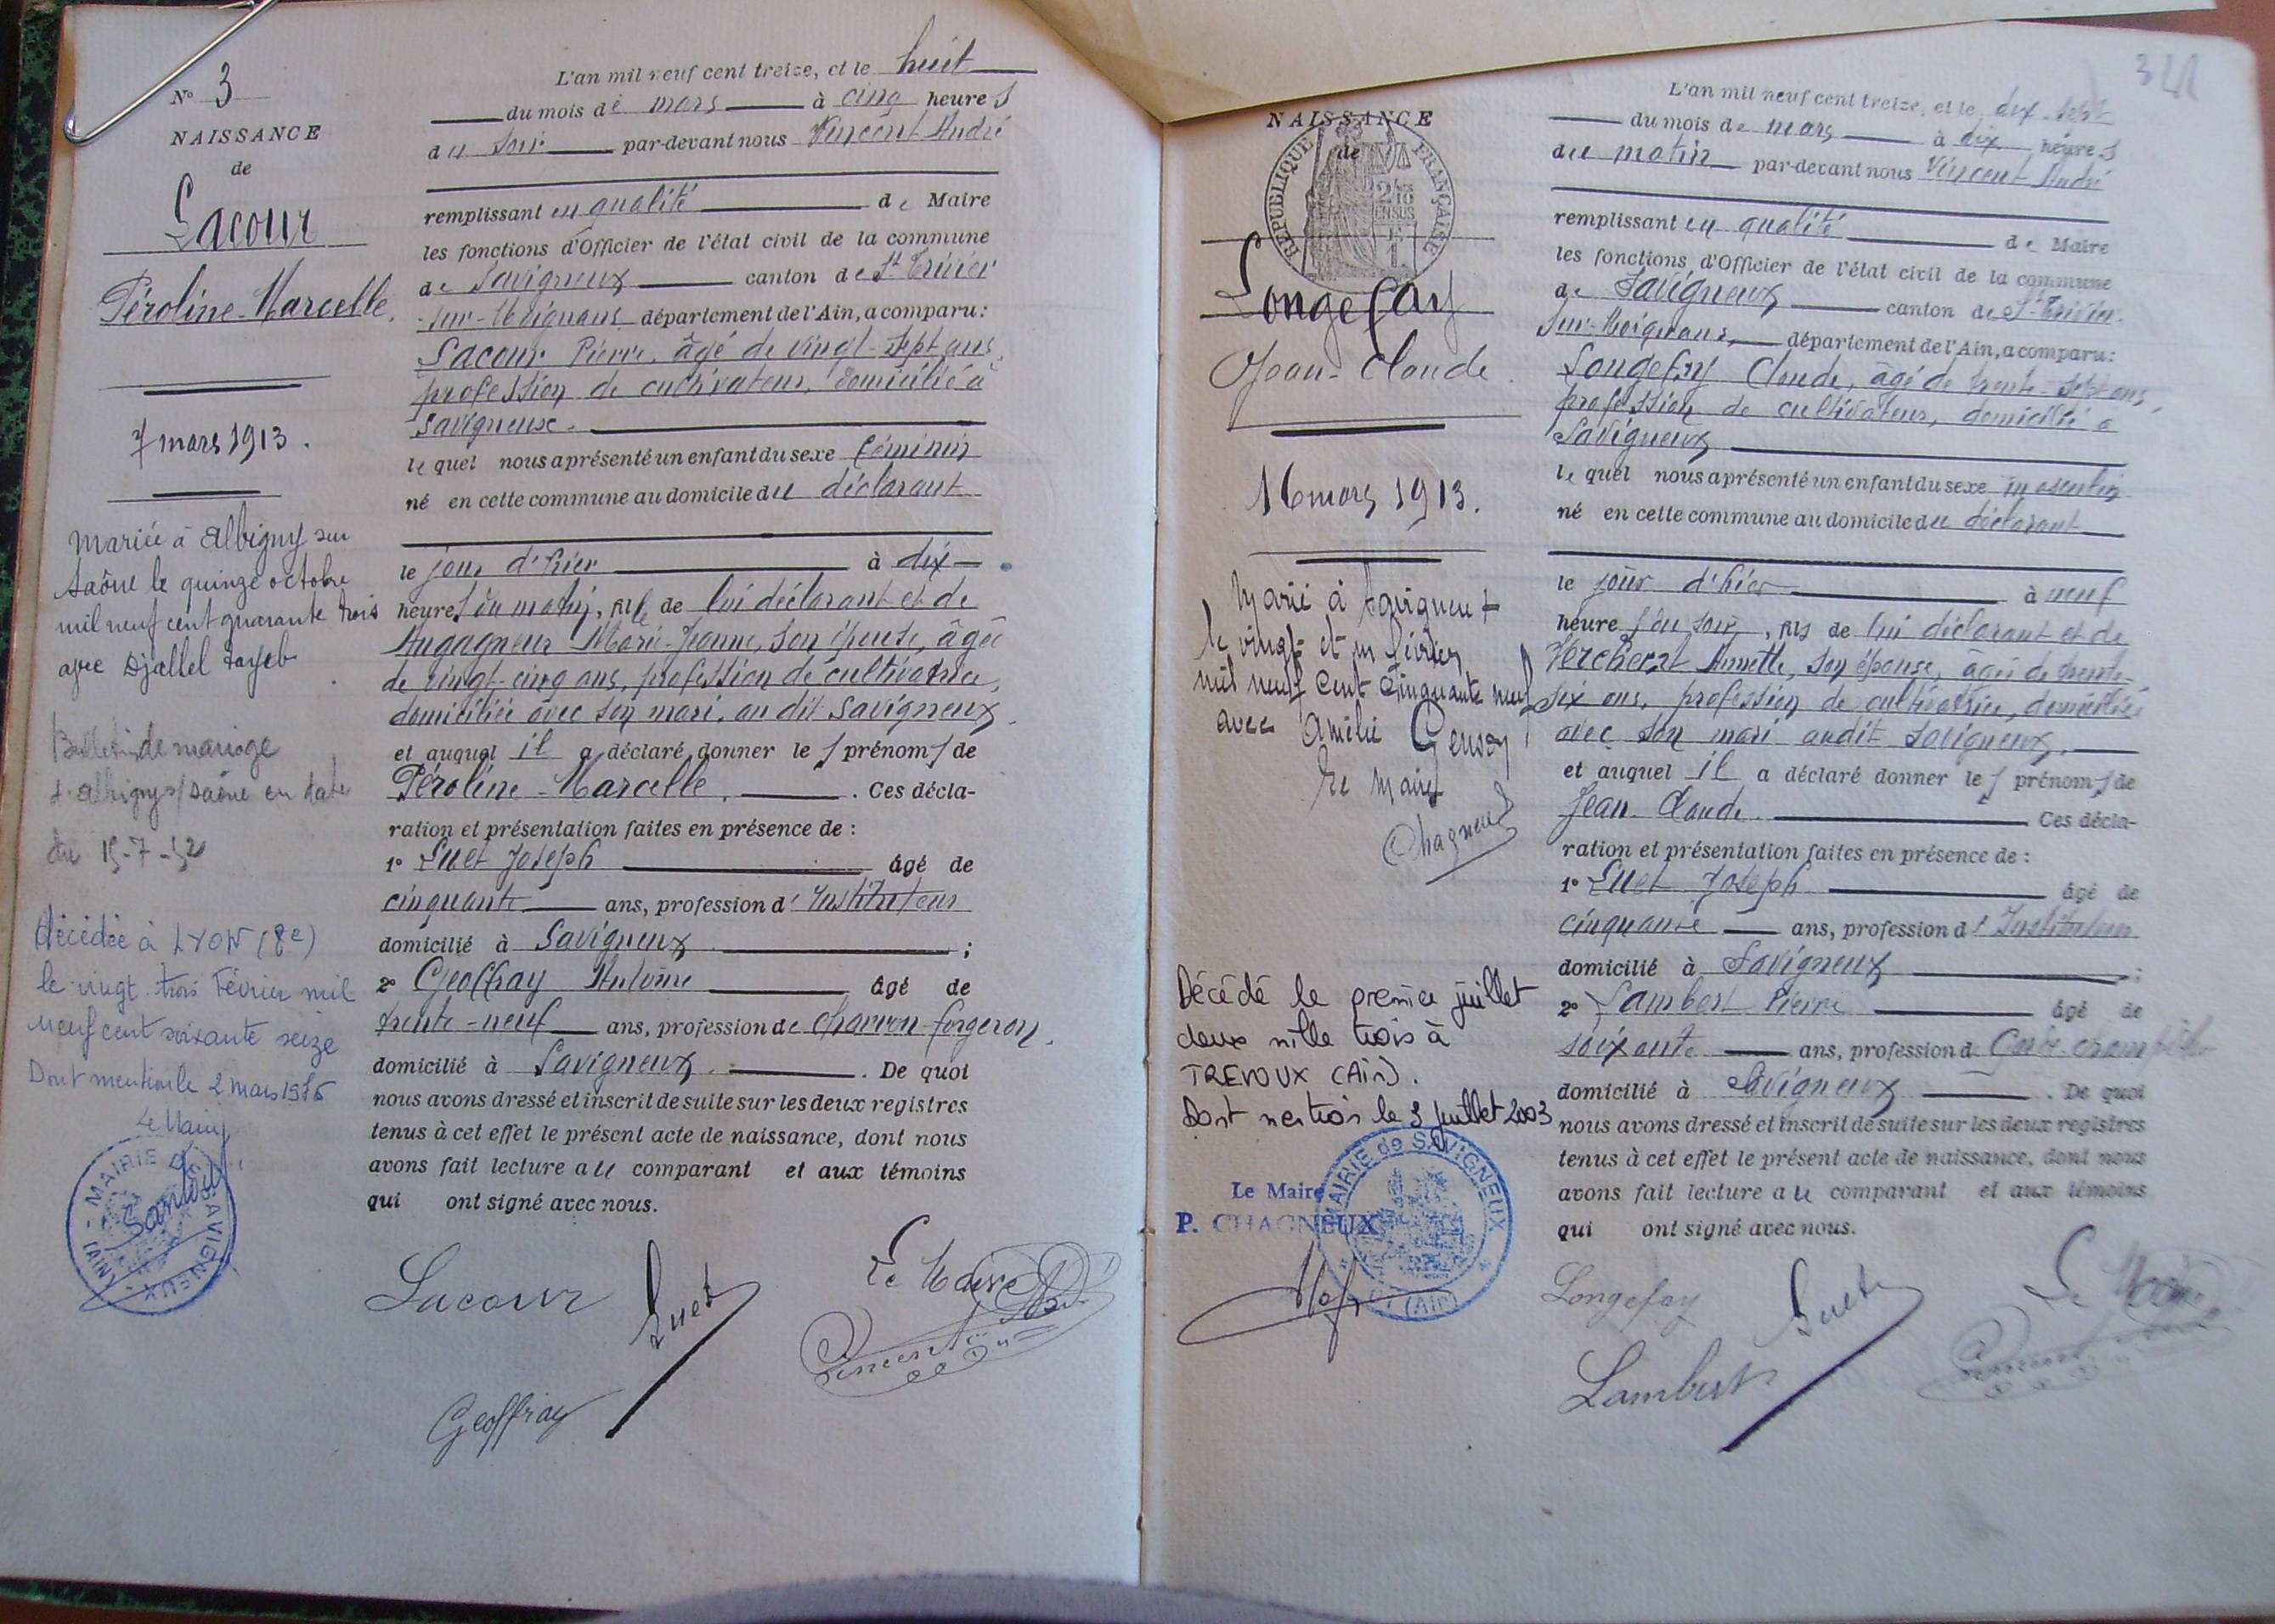 N° 3
NAISSANCE
de
Lacour
Péroline-Marcelle.
7 mars 1913.
Mariée à Albigny sur
Saône le quinze octobre
mil neuf cent quarante trois
avec Djallel Tayeb
Bulletin de mariage
d'Albigny s/ Saône en date
du 15-7-52
Décédée à LYON (8e)
le vingt trois Février mil
neuf cent soixante seize
Dont mention le 2 mars 1976
Le Maire
MAIRIE DE SAVIGNEUX
(AIN)
L'an mil neuf cent treize, et le huit
du mois de mars à cinq heures
du soir par-devant nous Vincent André
remplissant en qualité de Maire
les fonctions d'Officier de l'état civil de la commune
de Savigneux canton de St Trivier
-sur-Moignans département de l'Ain, a comparu:
Lacour Pierre, âgé de vingt-sept ans,
profession de cultivateur, domicilié à
Savigneux.
lequel nous a présenté un enfant du sexe féminin
né en cette commune au domicile du déclarant
le jour d'hier à dix
heures du matin, fille de lui déclarant et de
Augagneur Marie-Jeanne, son épouse, âgée
de vingt-cinq ans, profession de cultivatrice,
domiciliée avec son mari, au dit Savigneux.
et auquel il a déclaré donner les prénoms de
Péroline-Marcelle. Ces décla-
ration et présentation faites en présence de :
1° Luet Joseph âgé de
cinquante ans, profession d'Instituteur
domicilié à Savigneux ;
2° Geoffray Antoine âgé de
trente-neuf ans, profession de charron-forgeron,
domicilié à Savigneux. De quoi
nous avons dressé et inscrit de suite sur les deux registres
tenus à cet effet le présent acte de naissance, dont nous
avons fait lecture au comparant et aux témoins
qui ont signé avec nous.
Lacour Luet Le Maire
Vincent
Geoffray
NAISSANCE
de
REPUBLIQUE FRANÇAISE
Longefay
Jean-Claude.
16 mars 1913.
Marié à Savigneux
le vingt et un février
mil neuf cent cinquante neuf
avec Amélie
Le Maire
Chagneux
Décédé le premier juillet
deux mille trois à
TREVOUX (Ain).
Dont mention le 3 juillet 2003
Le Maire
P. CHAGNEUX
MAIRIE de SAVIGNEUX
(Ain)
L'an mil neuf cent treize, et le dix-sept
du mois de mars à dix heures
du matin par-devant nous Vincent André
remplissant en qualité de Maire
les fonctions d'Officier de l'état civil de la commune
de Savigneux canton de St-Trivier-
sur-Moignans, département de l'Ain, a comparu:
Longefay Claude, âgé de trente-sept ans,
profession de cultivateur, domicilié à
Savigneux
lequel nous a présenté un enfant du sexe masculin
né en cette commune au domicile du déclarant
le jour d'hier à neuf
heures du soir, fils de lui déclarant et de
Annette, son épouse, âgée de trente-
six ans, profession de cultivatrice, domiciliée
avec son mari audit Savigneux.
et auquel il a déclaré donner les prénoms de
Jean-Claude. Ces décla-
ration et présentation faites en présence de :
1° Luet Joseph âgé de
cinquante ans, profession d'Instituteur
domicilié à Savigneux ;
2° Lambert Pierre âgé de
soixante ans, profession de Garde-champêtre
domicilié à Savigneux. De quoi
nous avons dressé et inscrit de suite sur les deux registres
tenus à cet effet le présent acte de naissance, dont nous
avons fait lecture au comparant et aux témoins
qui ont signé avec nous.
Longefay Luet Le Maire
Lambert Vincent